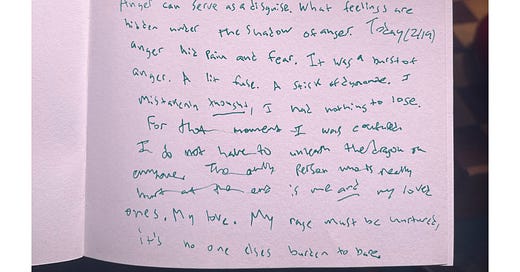 Anger can serve as a disguise. What feelings are
hidden under the shadow of anger. Today (2/19)
anger hid pain and fear. It was a burst of
anger. A lit fuse. A stick of dynamite. I
mistakenly thought, I had nothing to lose.
For that moment I was
I do not have to unleash the dragon on
anyone. The only person who's really
hurt at the end is me and my loved
ones. My love. My rage must be nurtured,
it's no one elses burden to bare.